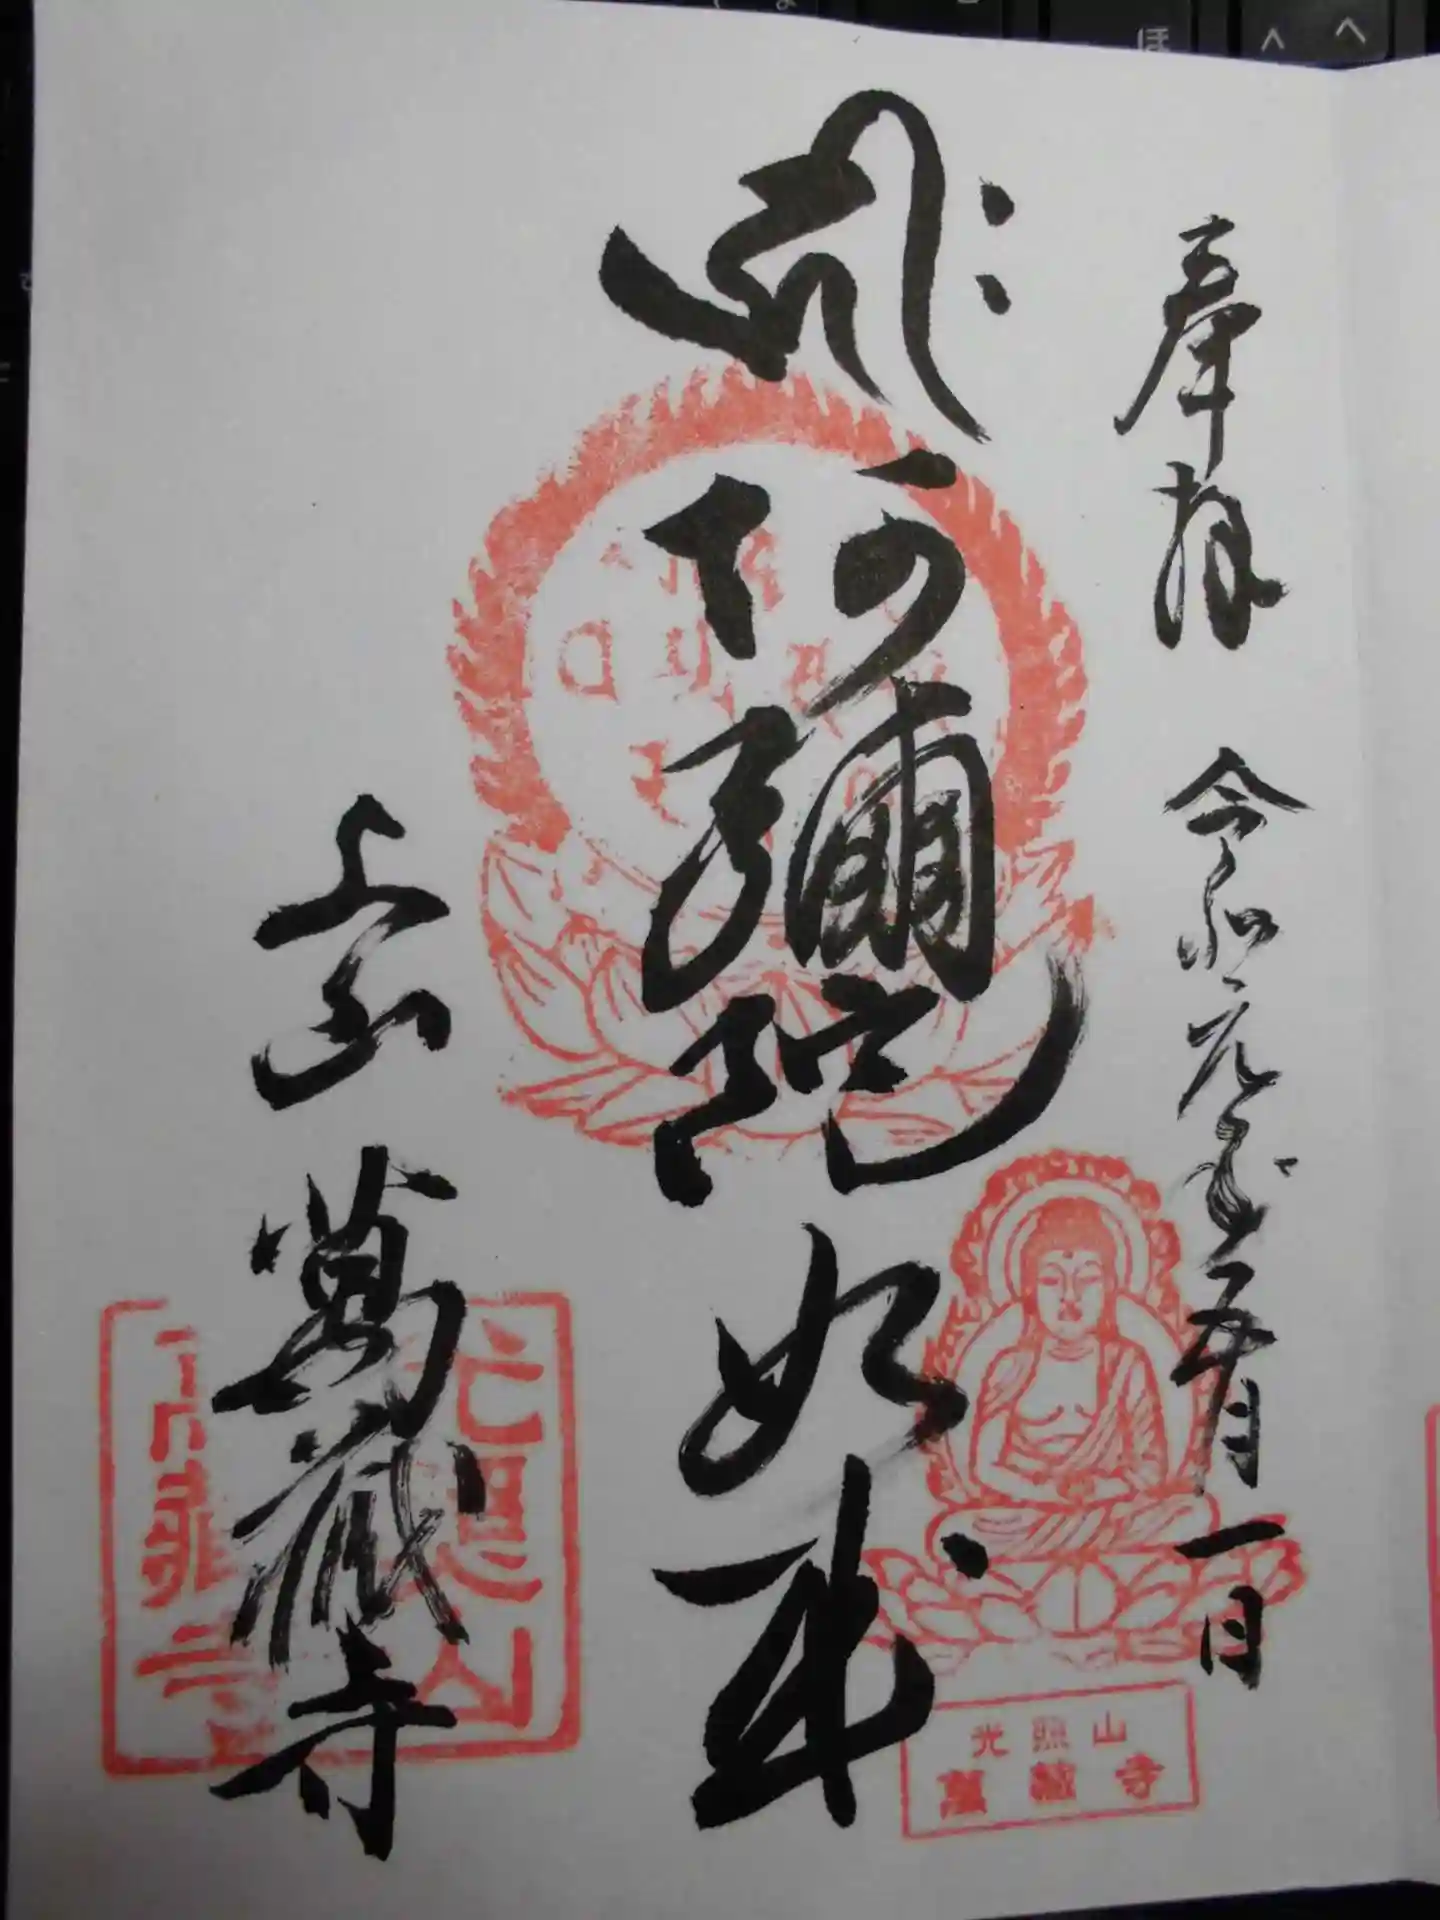 奉拝　令和元年五月一日
阿彌陀如来
上品　萬蔵寺
光照山
萬蔵寺
ほ
へ